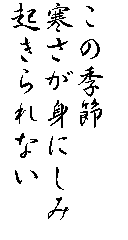 この季節
寒さが身にしみ
起きられない